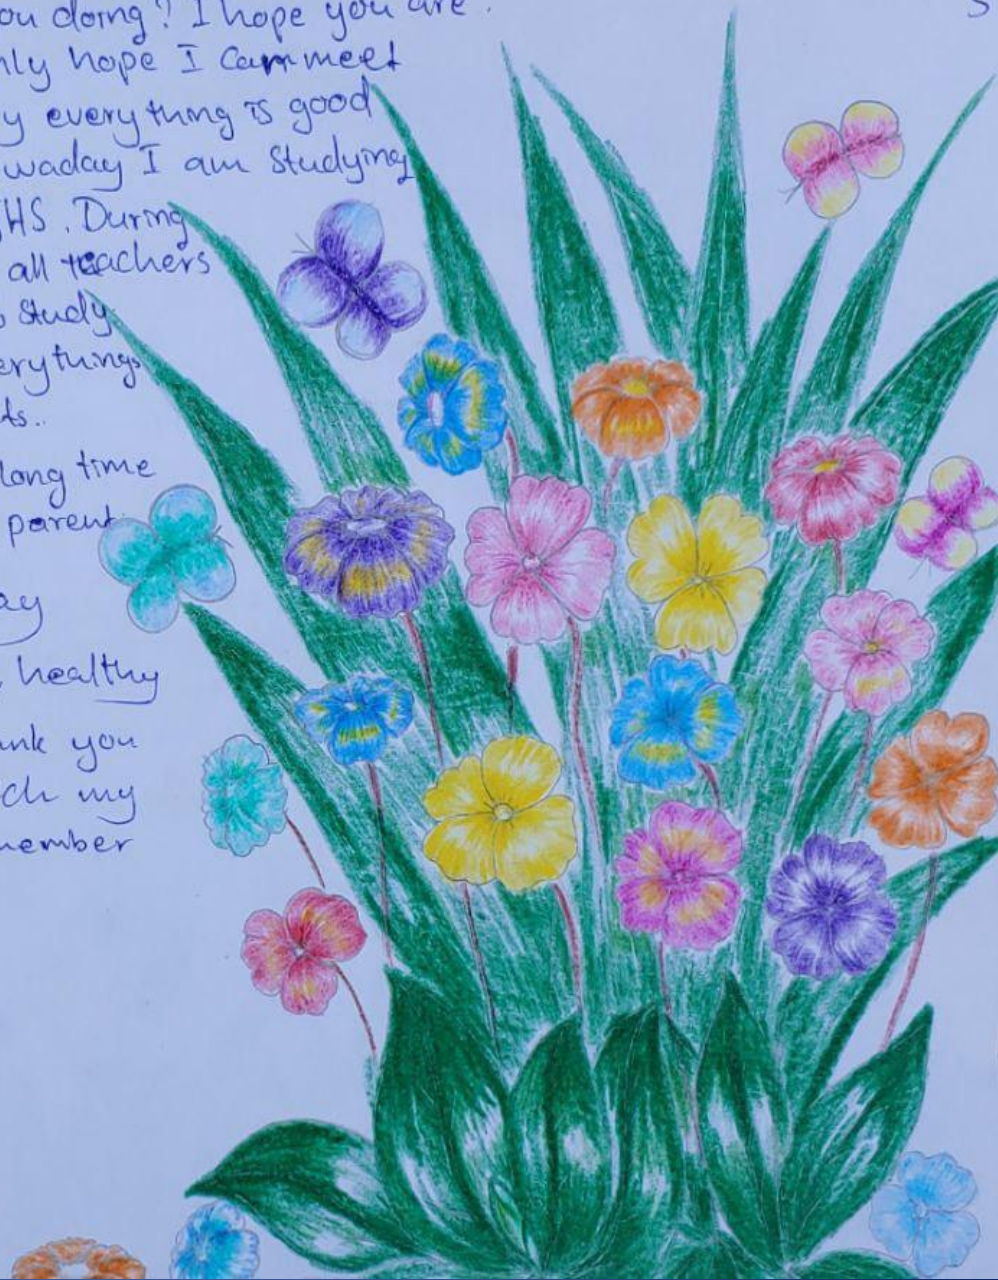 ou doing? I hope you are.
nly hope I can meet
y everything is good
waday I am Studying
THS. During
all teachers
o study
erythings
ts..
long time
parent
ay
healthy
ank you
ch my
member
S